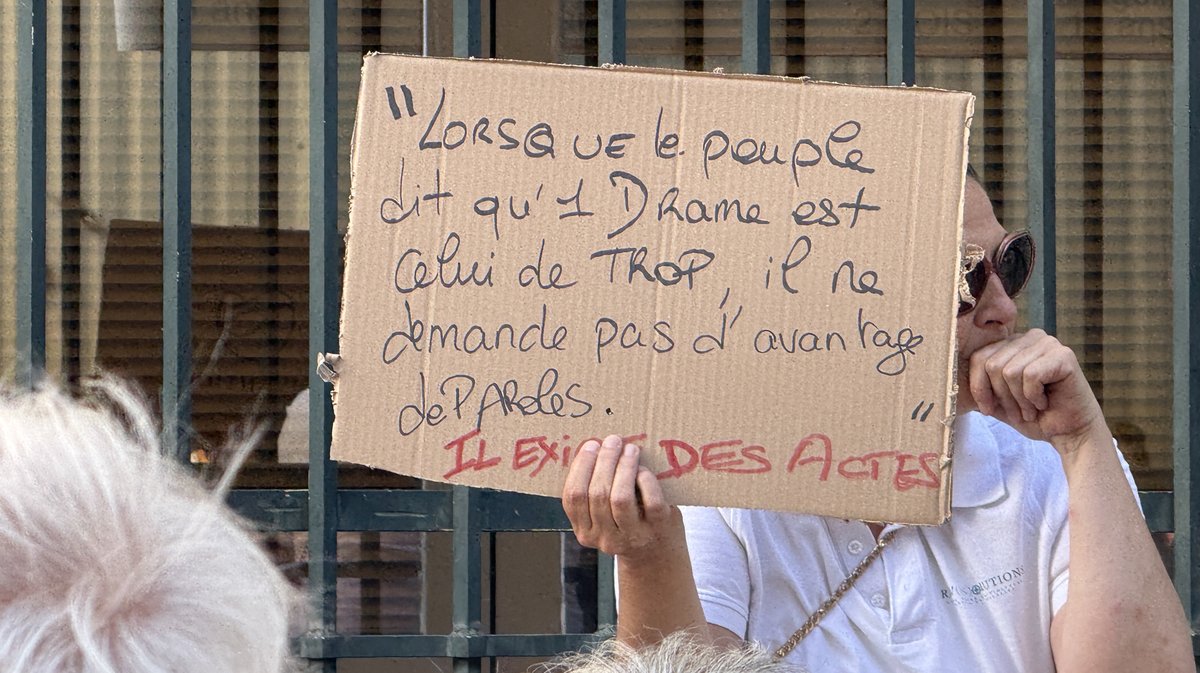 "LORSQUE le peuple
dit qu'1 DRame est
celui de TROP, il ne
demande pas d'avantage
de PARoles. "
IL EXIGE DES ACTES